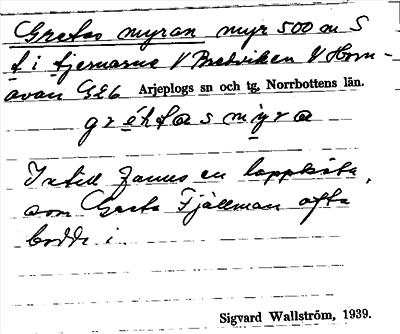 Gretas myran myr 500 m S
t i tjernarne V Bredviken V Horn-
avan G26 Arjeplogs sn och tg, Norrbottens län.
gréhtas myra
Intill fanns en lappkåta,
som Greta Fjällman ofta
bodde i.
Sigvard Wallström, 1939.